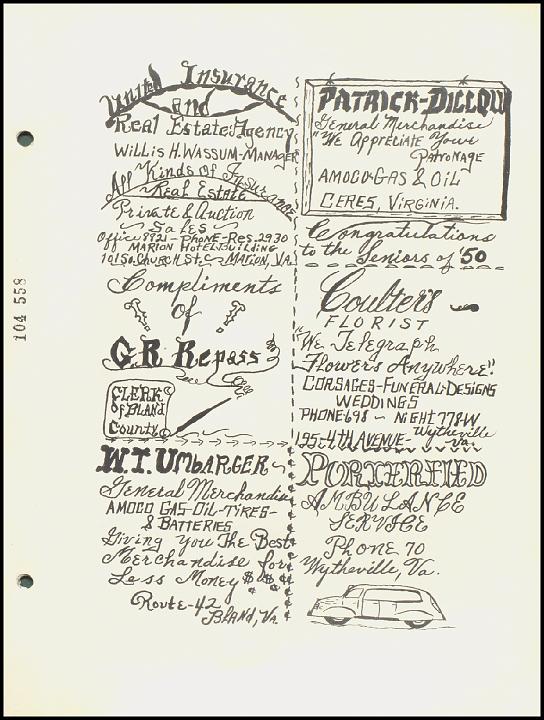 United Insurance
and
Real Estate Agency
Willis H. Wassum-Manager
All Kinds of Insurance
Real Estate
Private & Auction
~ Sales ~
Office 8921 - Phone - Res. 2930
Marion Hotel Building
101 So. Church St. ~ Marion, Va.
Compliments
of
G.R. Repass
Clerk
of Bland
County
W.T. Umbarger
General Merchandise
Amoco Gas-Oil-Tires-
& Batteries
Giving You The Best
Merchandise for
Less Money $ $ $
Route-42
Bland, Va.
Patrick-Dillow
General Merchandise
"We Appreciate Your
Patronage
Amoco-Gas & Oil
Ceres, Virginia.
Congratulations
to the Seniors of '50
Coulter's
Florist
"We Telegraph
Flowers Anywhere".
Corsages-Funeral-Designs
Weddings
Phone-698 - Night 778-W
195-4th Avenue - Wytheville
Va.
Porterfield
Ambulance
Service
Phone 70
Wytheville, Va.
104 558